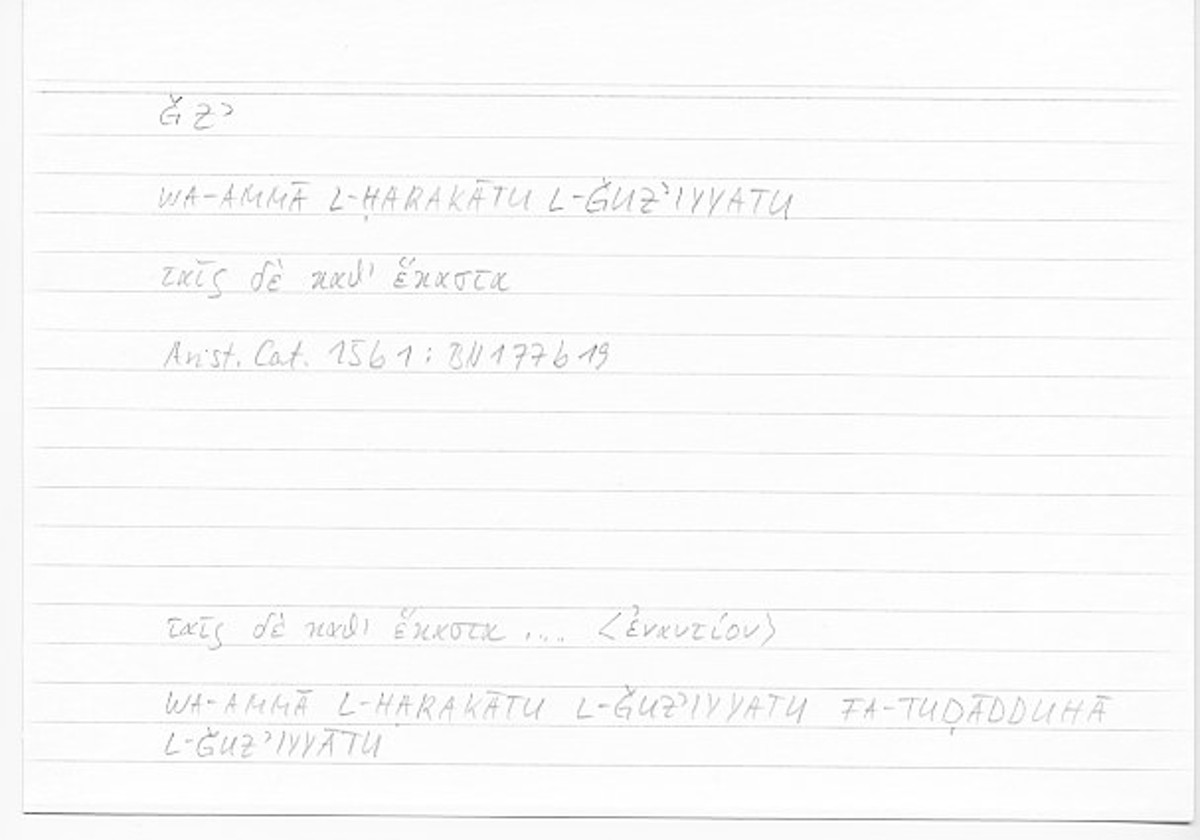 Ǧ Zʾ
WA-AMMĀ L-ḤARAKĀTU L-ǦUZʾIYYATU
ταῖς δὲ καθ' ἕκαστα
Arist. Cat. 15b1: BN177b19
ταῖς δὲ καθ' ἕκαστα .... <ἐναντίον>
WA-AMMĀ L-ḤARAKĀTU L-ǦUZʾIYYATU FA-TUḌĀDDUHĀ
L-ǦUZʾIYYĀTU